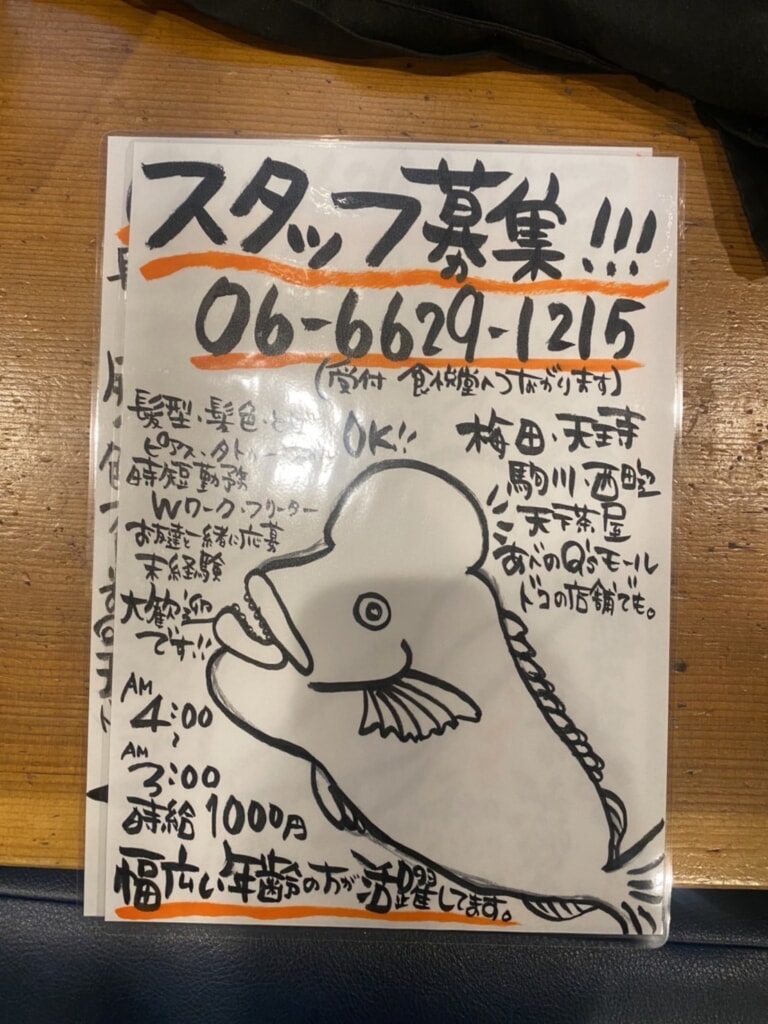 スタッフ募集!!!
06-6629-1215
(受付 食悦堂へつながります)
髪型・髪色・ヒゲ
ピアス・タトゥー OK!!
時短勤務
Wワーク・フリーター
お友達と一緒に応募
未経験
大歓迎
です!!
梅田・天王寺
駒川・西田辺
天下茶屋
あべのQ'sモール
ドコの店舗でも。
AM
4:00
~
AM
3:00
時給1000円
幅広い年齢の方が活躍してます。